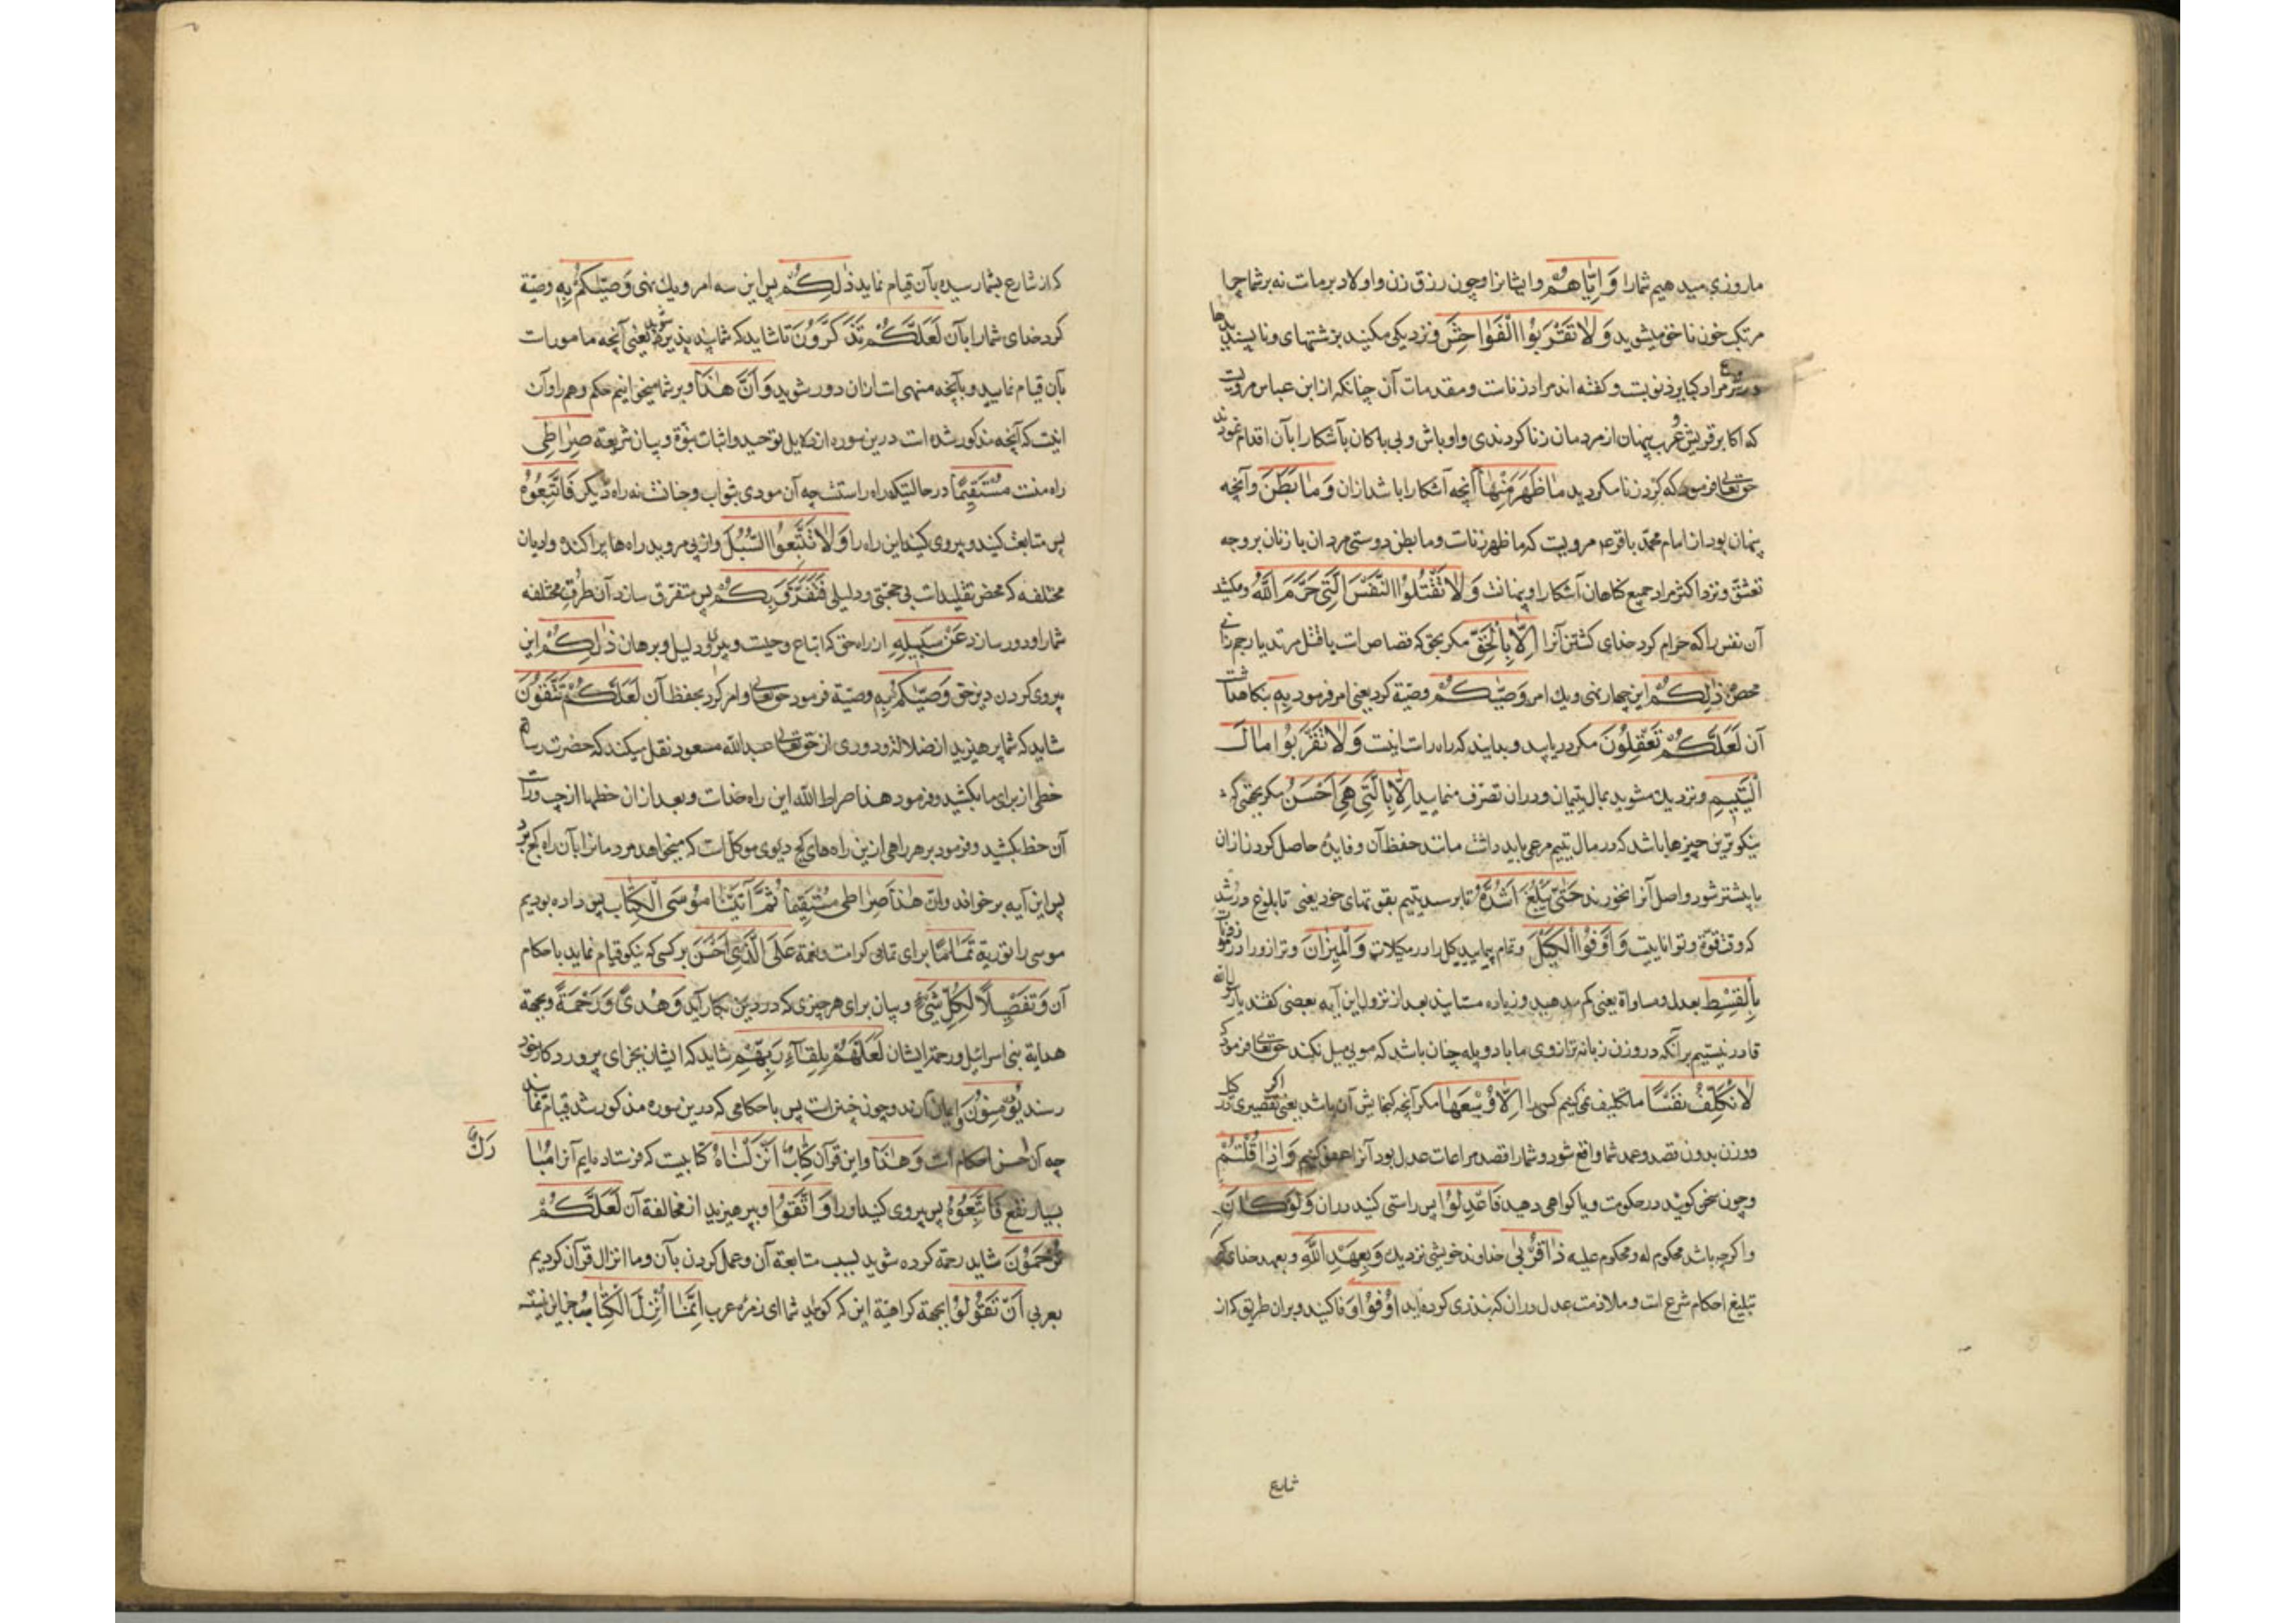 ما روزی میدهیم شما را وَاِیّاهُم وایشانرا وچون رزق زن واولاد بر مات نه بر شما چرا
مرتکب خون ناحق میشوید وَلاتَقْرَبُوا الْفَواحِشَ ونزدیکی مکنید بزشتیهای وناپسندیدها
مراد کبایر ذنوبست وکفته اند مراد زنات ومقدمات آن چنانکه از ابن عباس مرویست
که اکابر قریش وعرب پنهان از مردمان زنا کردندی واوباش وبی باکان بآشکارا بآن اقدام نمودند
حق تعالی فرمود که کرد زنا مکردید ما ظَهَرَ مِنْها آنچه آشکارا باشد ازان وَما بَطَنَ وآنچه
پنهان بود از امام محمد باقر ع مرویست که ما ظهر زنات وما بطن دوستی مردان با زنان بر وجه
تعشق ونزد اکثر مراد جمیع کناهان آشکارا وپنهانست وَلاتَقْتُلُوا النَّفْسَ الَّتی حَرَّمَ اللّهُ ومکشید
آن نفس را که حرام کرد خدای کشتن آنرا اِلّا بِالْحَقِّ مکر بحق که قصاص است یا قتل مرتد یا رجم زانی
محصن ذلِکُم این چهار نهی ویك امر وَصّیکُم وصیّة کرد یعنی امر فرمود بِهِ بنکاهداشت
آن لَعَلَّکُم تَعْقِلُونَ مکر دریابید وبدانید که راه راست اینست وَلاتَقْرَبُوا مالَ
الْیَتیمِ ونزدیك مشوید بمال یتیمان ودران تصرف منمایید اِلّا بِالَّتی هِیَ اَحْسَنُ مکر بخصلتی که
نیکوترین چیزها باشد که در مال یتیم مرعی باید داشت مانند حفظ آن وفایده حاصل کردن ازان
تا بیشتر شود واصل آنرا نخورند حَتّی یَبْلُغَ اَشُدَّهُ تا برسد یتیم بقوتهای خود یعنی تا بلوغ ورشد
که وقت قوة وتواناییست وَاَوْفُوا الْکَیْلَ وتمام پیمایید کیل را در مکیلات وَالْمیزانَ وترازو را در موزونات
بِالْقِسْطِ بعدل ومساواة یعنی کم مدهید وزیاده مستانید بعد از نزول این آیه بعضی کفتند یا رسول الله
قادر نیستیم برآنکه در وزن زبانه ترازوی ما با دو پله چنان باشد که مویی میل نکند حق تعالی فرمود که
لانُکَلِّفُ نَفْسًا ما تکلیف نمی کنیم کسی را اِلّا وُسْعَها مکر آنچه کنجایش آن باشد یعنی اکر تقصیری در کیل
ووزن بدون قصد وعمد شما واقع شود وشما را قصد مراعات عدل بود آنرا عفو کنیم وَاِذا قُلْتُمْ
وچون سخن کویید در حکومت ویا کواهی دهید فَاعْدِلُوا پس راستی کنید دران وَلَوْ کانَ
واکرچه باشد محکوم له ومحکوم علیه ذا قُرْبی خداوند خویشی نزدیك وَبِعَهْدِ اللّهِ وبعهد خدای که
تبلیغ احکام شرع است وملازمت عدل دران که نذری کرده اید اَوْفُوا وفا کنید وبران طریق که از
شارع
که از شارع بشما رسیده بآن قیام نماید ذلِکُم پس این سه امر ویك نهی وَصّیکُمْ بِهِ وصیّة
کرد خدای شما را بآن لَعَلَّکُم تَذَکَّرُونَ تا شاید که شما پند پذیر شوید یعنی آنچه مامورات
بآن قیام نمایید وبآنچه منهی است ازان دور شوید وَاَنَّ هذا وبر شما میخوانیم حکم وهم را وآن
اینست که آنچه مذکور شده است درین سوره از دلایل توحید واثبات نبوة وبیان شریعة صِراطی
راه منست مُسْتَقیمًا درحالتیکه راه راستست چه آن مودی بثواب وجنانست نه راه دیکر فَاتَّبِعُوهُ
پس متابعت کنید وپیروی کنید این راه را وَلاتَتَّبِعُوا السُّبُلَ واز پی مروید راه ها پراکنده وادیان
مختلفه که محض تقلیدات بی حجتی ودلیلی فَتَفَرَّقَ بِکُم پس متفرق سازد آن طرق مختلفه
شما را ودور سازد عَنْ سَبیلِهِ از راه حق که اتباع وحیست وپیرو دلیل وبرهان ذلِکُم این
پیروی کردن دین حق وَصّیکُمْ بِهِ وصیّة فرمود حق تعالی وامر کرد بحفظ آن لَعَلَّکُم تَتَّقُونَ
شاید که شما پرهیزید از ضلالة ودوری از حق تعالی عبد الله مسعود نقل میکند که حضرت رسالة
خطی از برای ما بکشید وفرمود هذا صراط الله این راه خداست وبعد ازان خطها از چپ وراست
آن خط بکشید وفرمود بر هر راهی ازین راه های کج دیوی موکل است که میخواهد مردمانرا بآن راه کج برد
پس این آیه برخواند وان هذا صِراطی مُسْتَقیما ثُمَّ آتَیْنا مُوسَی الْکِتابَ پس داده بودیم
موسی را توریة تَمامًا برای تمامی کرامت ونعمة عَلَی الَّذی اَحْسَنَ برکسی که نیکو قیام نماید باحکام
آن وَتَفْصیلاً لِکُلِّ شَیْءٍ وبیان برای هر چیزی که در دین بکار آید وَهُدیً وَرَحْمَةً وبجهة
هدایة بنی اسرائیل ورحمة ایشان لَعَلَّهُمْ بِلِقاءِ رَبِّهِمْ شاید که ایشان بجزای پروردکار خود
رسند یُؤْمِنُونَ ایمان آرند وچون چنین است پس باحکامی که درین سوره مذکور شد قیام نمایند
چه آن احسن احکام است وَهذا واین قرآن کِتابٌ اَنْزَلْناهُ کتابیست که فرستاده ایم آنرا مُبا
رَكٌ
بسیار نفع فَاتَّبِعُوهُ پس پیروی کنید اورا وَاتَّقُوا وبپرهیزید از مخالفة آن لَعَلَّکُمْ
تُرْحَمُونَ شاید رحمة کرده شوید بسبب متابعة آن وعمل کردن بآن وما انزال قرآن کردیم
بعربی اَنْ تَقُولُوا بجهة کراهیة این که کویید شما ای زمره عرب اِنَّما اُنْزِلَ الْکِتابُ